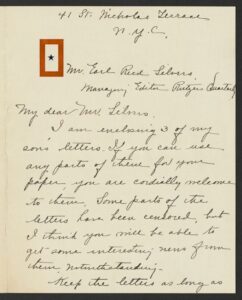 41 St. Nicholas Terrace
N.Y.C.
Mr. Earl Reed Silvers
Managing Editor Rutgers Quarterly
My dear Mr. Silvers,
I am enclosing 3 of my
son's letters. If you can use
any parts of them for your
paper, you are cordially welcome
to them. Some parts of the
letters have been censored, but
I think you will be able to
get some interesting news from
them notwithstanding.
Keep the letters as long as